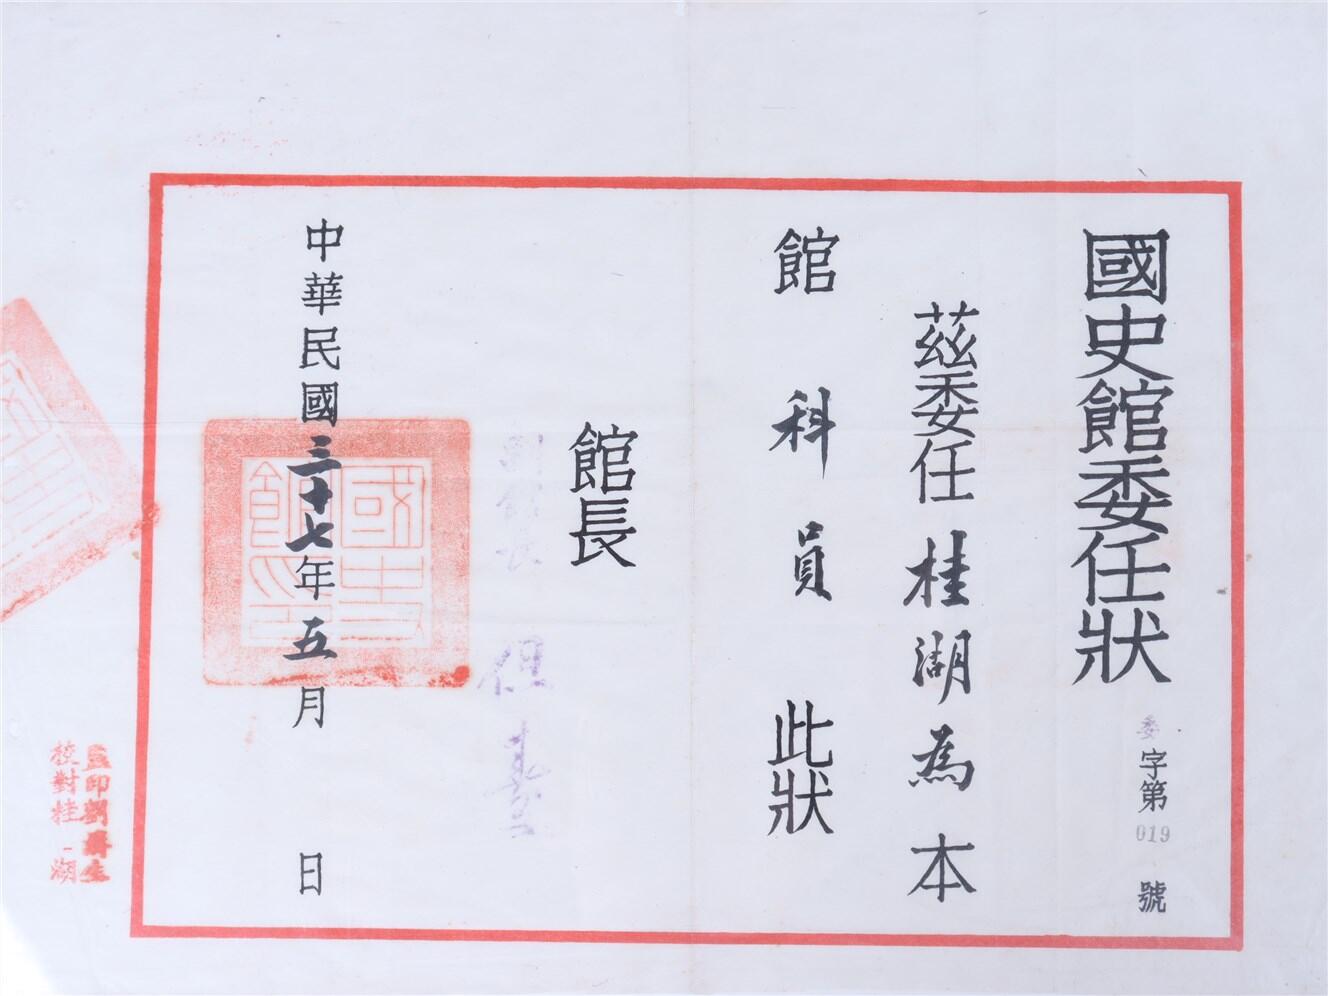 國史館委任狀
委字第019號
茲委任桂湖為本
館科員此狀
館長
副館長 但燾
中華民國三十七年五月日
國史館印
監印劉壽生
校對桂湖